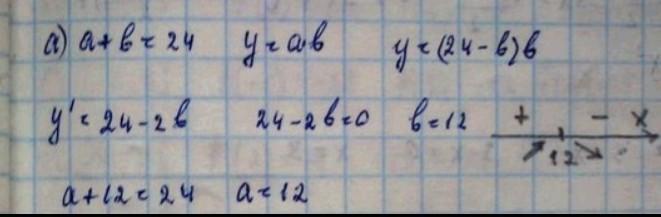 а) a+b=24 y=a·b y=(24-b)b
y'=24-2b 24-2b=0 b=12 + - x
12
a+12=24 a=12